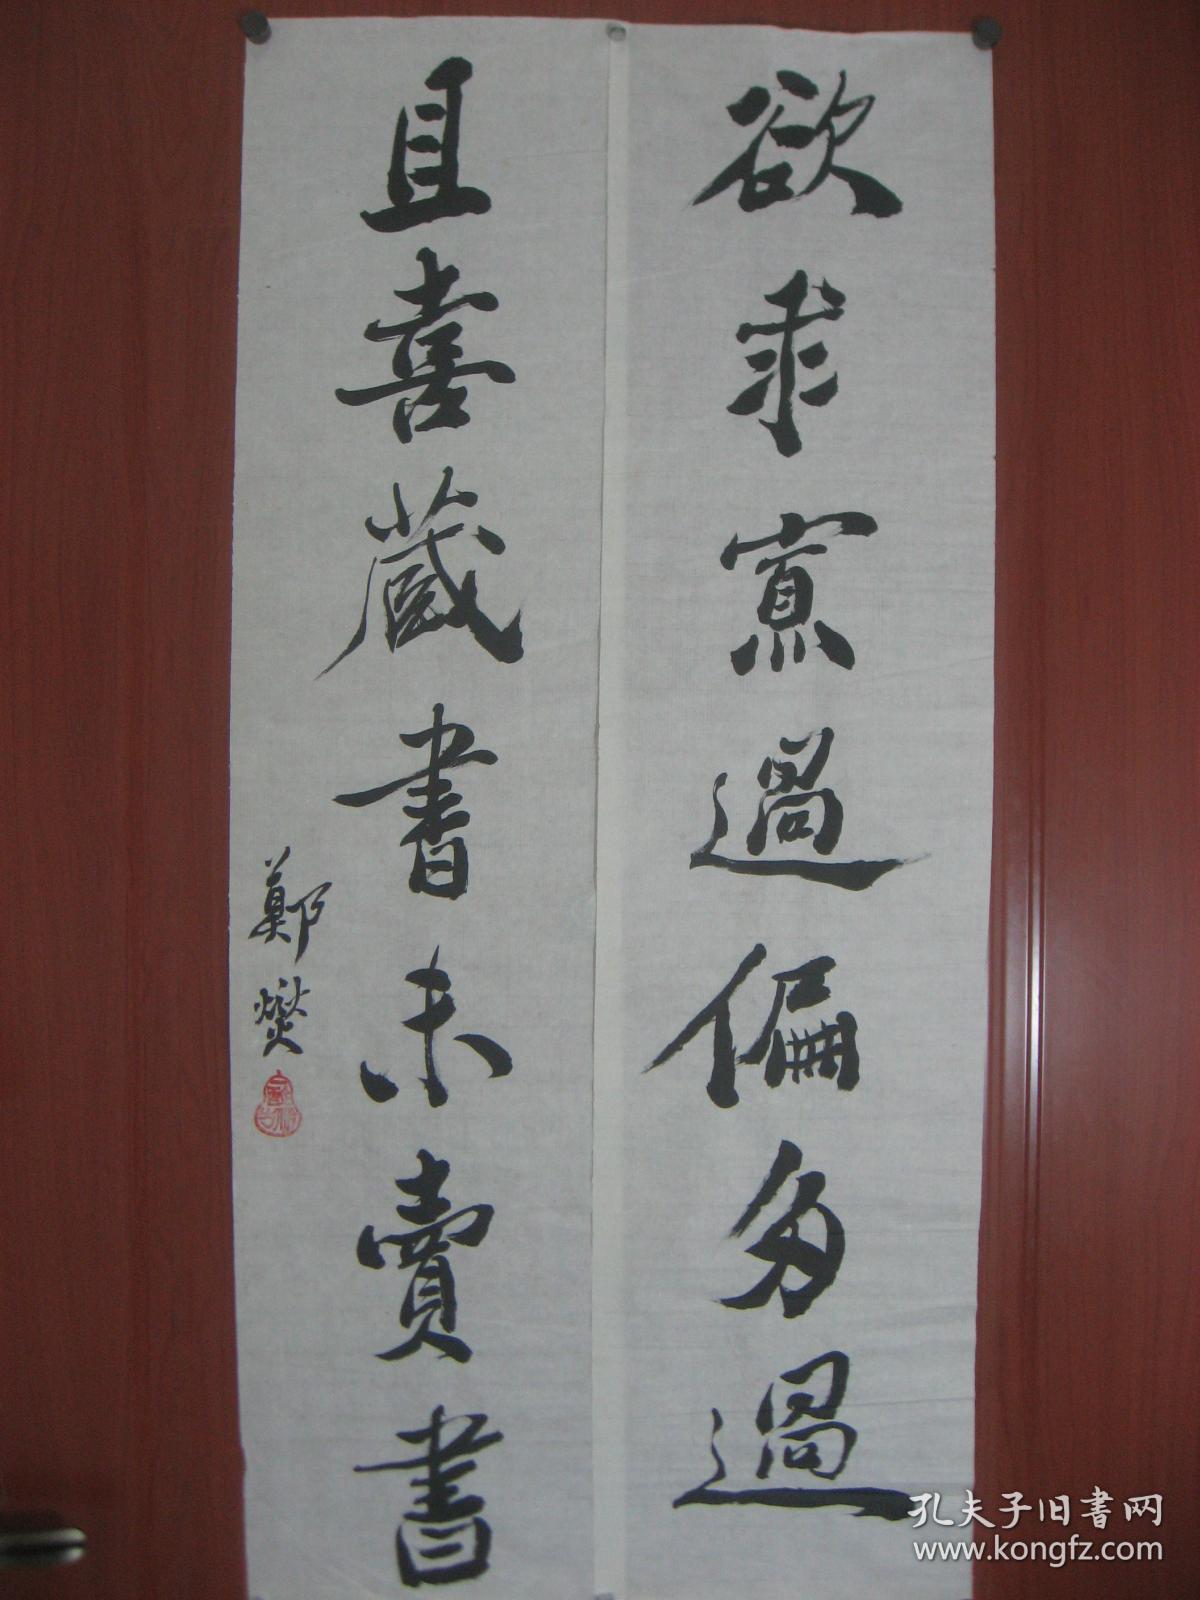 欲求寡過偏多過
且喜藏書未賣書
鄭燮
孔夫子旧書网
www.kongfz.com